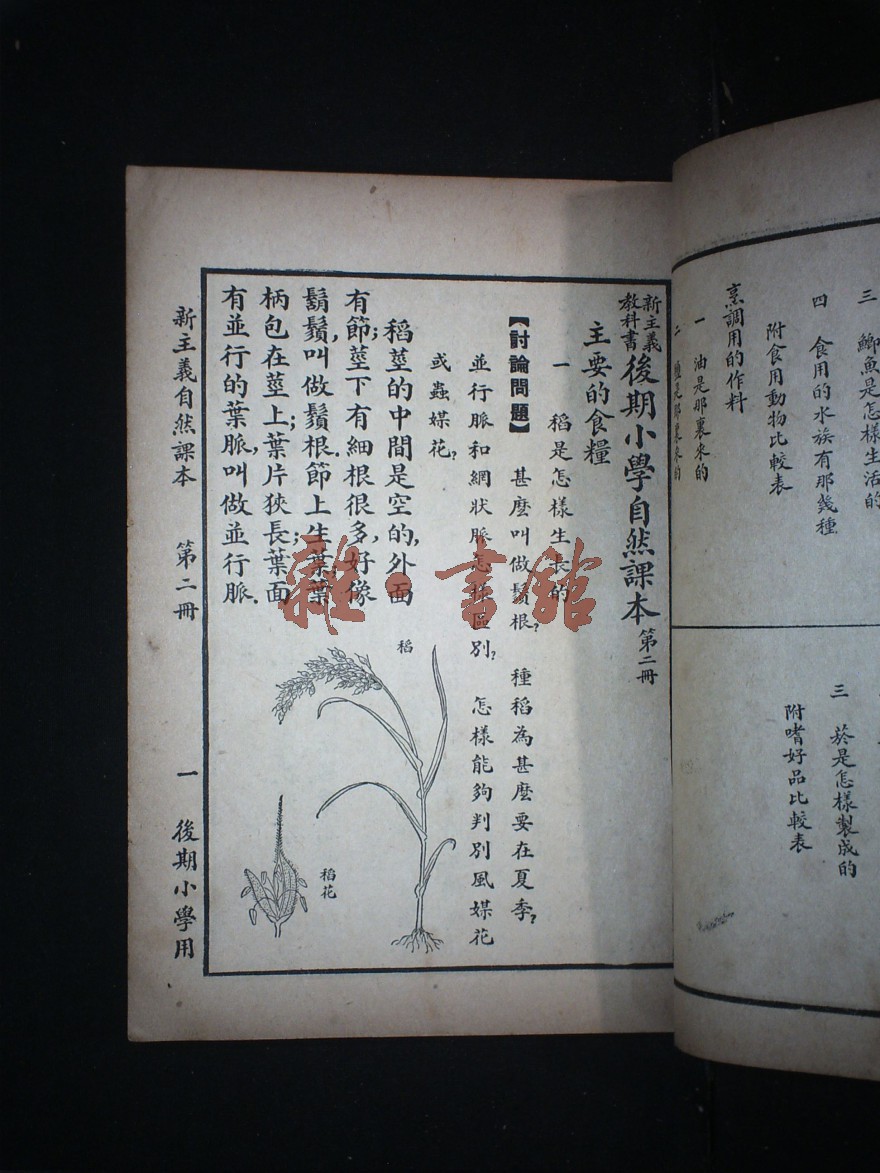 三 鯽魚是怎樣生活的
四 食用的水族有那幾種
附食用動物比較表
烹調用的作料
一 油是那裏來的
二 鹽是那裏來的
三 菸是怎樣製成的
附嗜好品比較表
新主義教科書 後期小學自然課本 第二冊
主要的食糧
一 稻是怎樣生長的
【討論問題】 甚麼叫做鬚根? 種稻為甚麼要在夏季?
並行脈和網狀脈怎樣區別? 怎樣能夠判別風媒花
或蟲媒花?
稻莖的中間是空的,外面
有節;莖下有細根很多,好像
鬍鬚,叫做鬚根.節上生葉;葉
柄包在莖上;葉片狹長,葉面
有並行的葉脈,叫做並行脈.
稻
稻花
新主義自然課本 第二冊 一 後期小學用
雜·書館